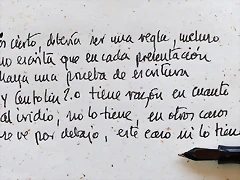 es cierto, debería ser una regla, incluso
no escrita que en cada presentación
haya una prueba de escritura
y Centolin 2.0 tiene razón en cuanto
al iridio, no lo tiene, en otros casos
se ve por debajo, este caro ni lo tiene